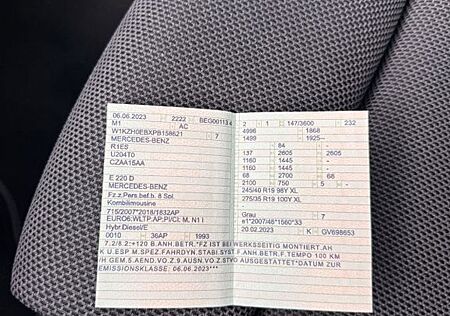 06.06.2023 2222 BEG001134
M1 AC
W1KZH0EBXPB158621 7
MERCEDES-BENZ
R1ES
U204T0
CZAA15AA
E 220 D
MERCEDES-BENZ
Fz.z.Pers.bef.b. 8 Spl.
Kombilimousine
715/2007*2018/1832AP
EURO6;WLTP,AP,PI/CI; M, N1 I
Hybr.Diesel/E
0010 36AP 1993
2 1 147/3600 232
4996 1868
1499 1925--
84
137 2605 2605
1160 1445
1160 1445
68 2700 68
2100 750 5
245/40 R19 98Y XL
275/35 R19 100Y XL
Grau 7
e1*2007/46*1560*33
20.02.2023 K GV698653
7.2/8.2:+120 B.ANH.BETR.*FZ IST BEI WERKSSEITIG MONTIERT.AH
K U.ESP M.SPEZ.FAHRDYN.STABI.SYST.F.ANH.BETR.F.TEMPO 100 KM
/H GEM.5.AEND.VO.Z.9.AUSN.VO.Z.STVO AUSGESTATTET*DATUM ZUR
EMISSIONSKLASSE: 06.06.2023***